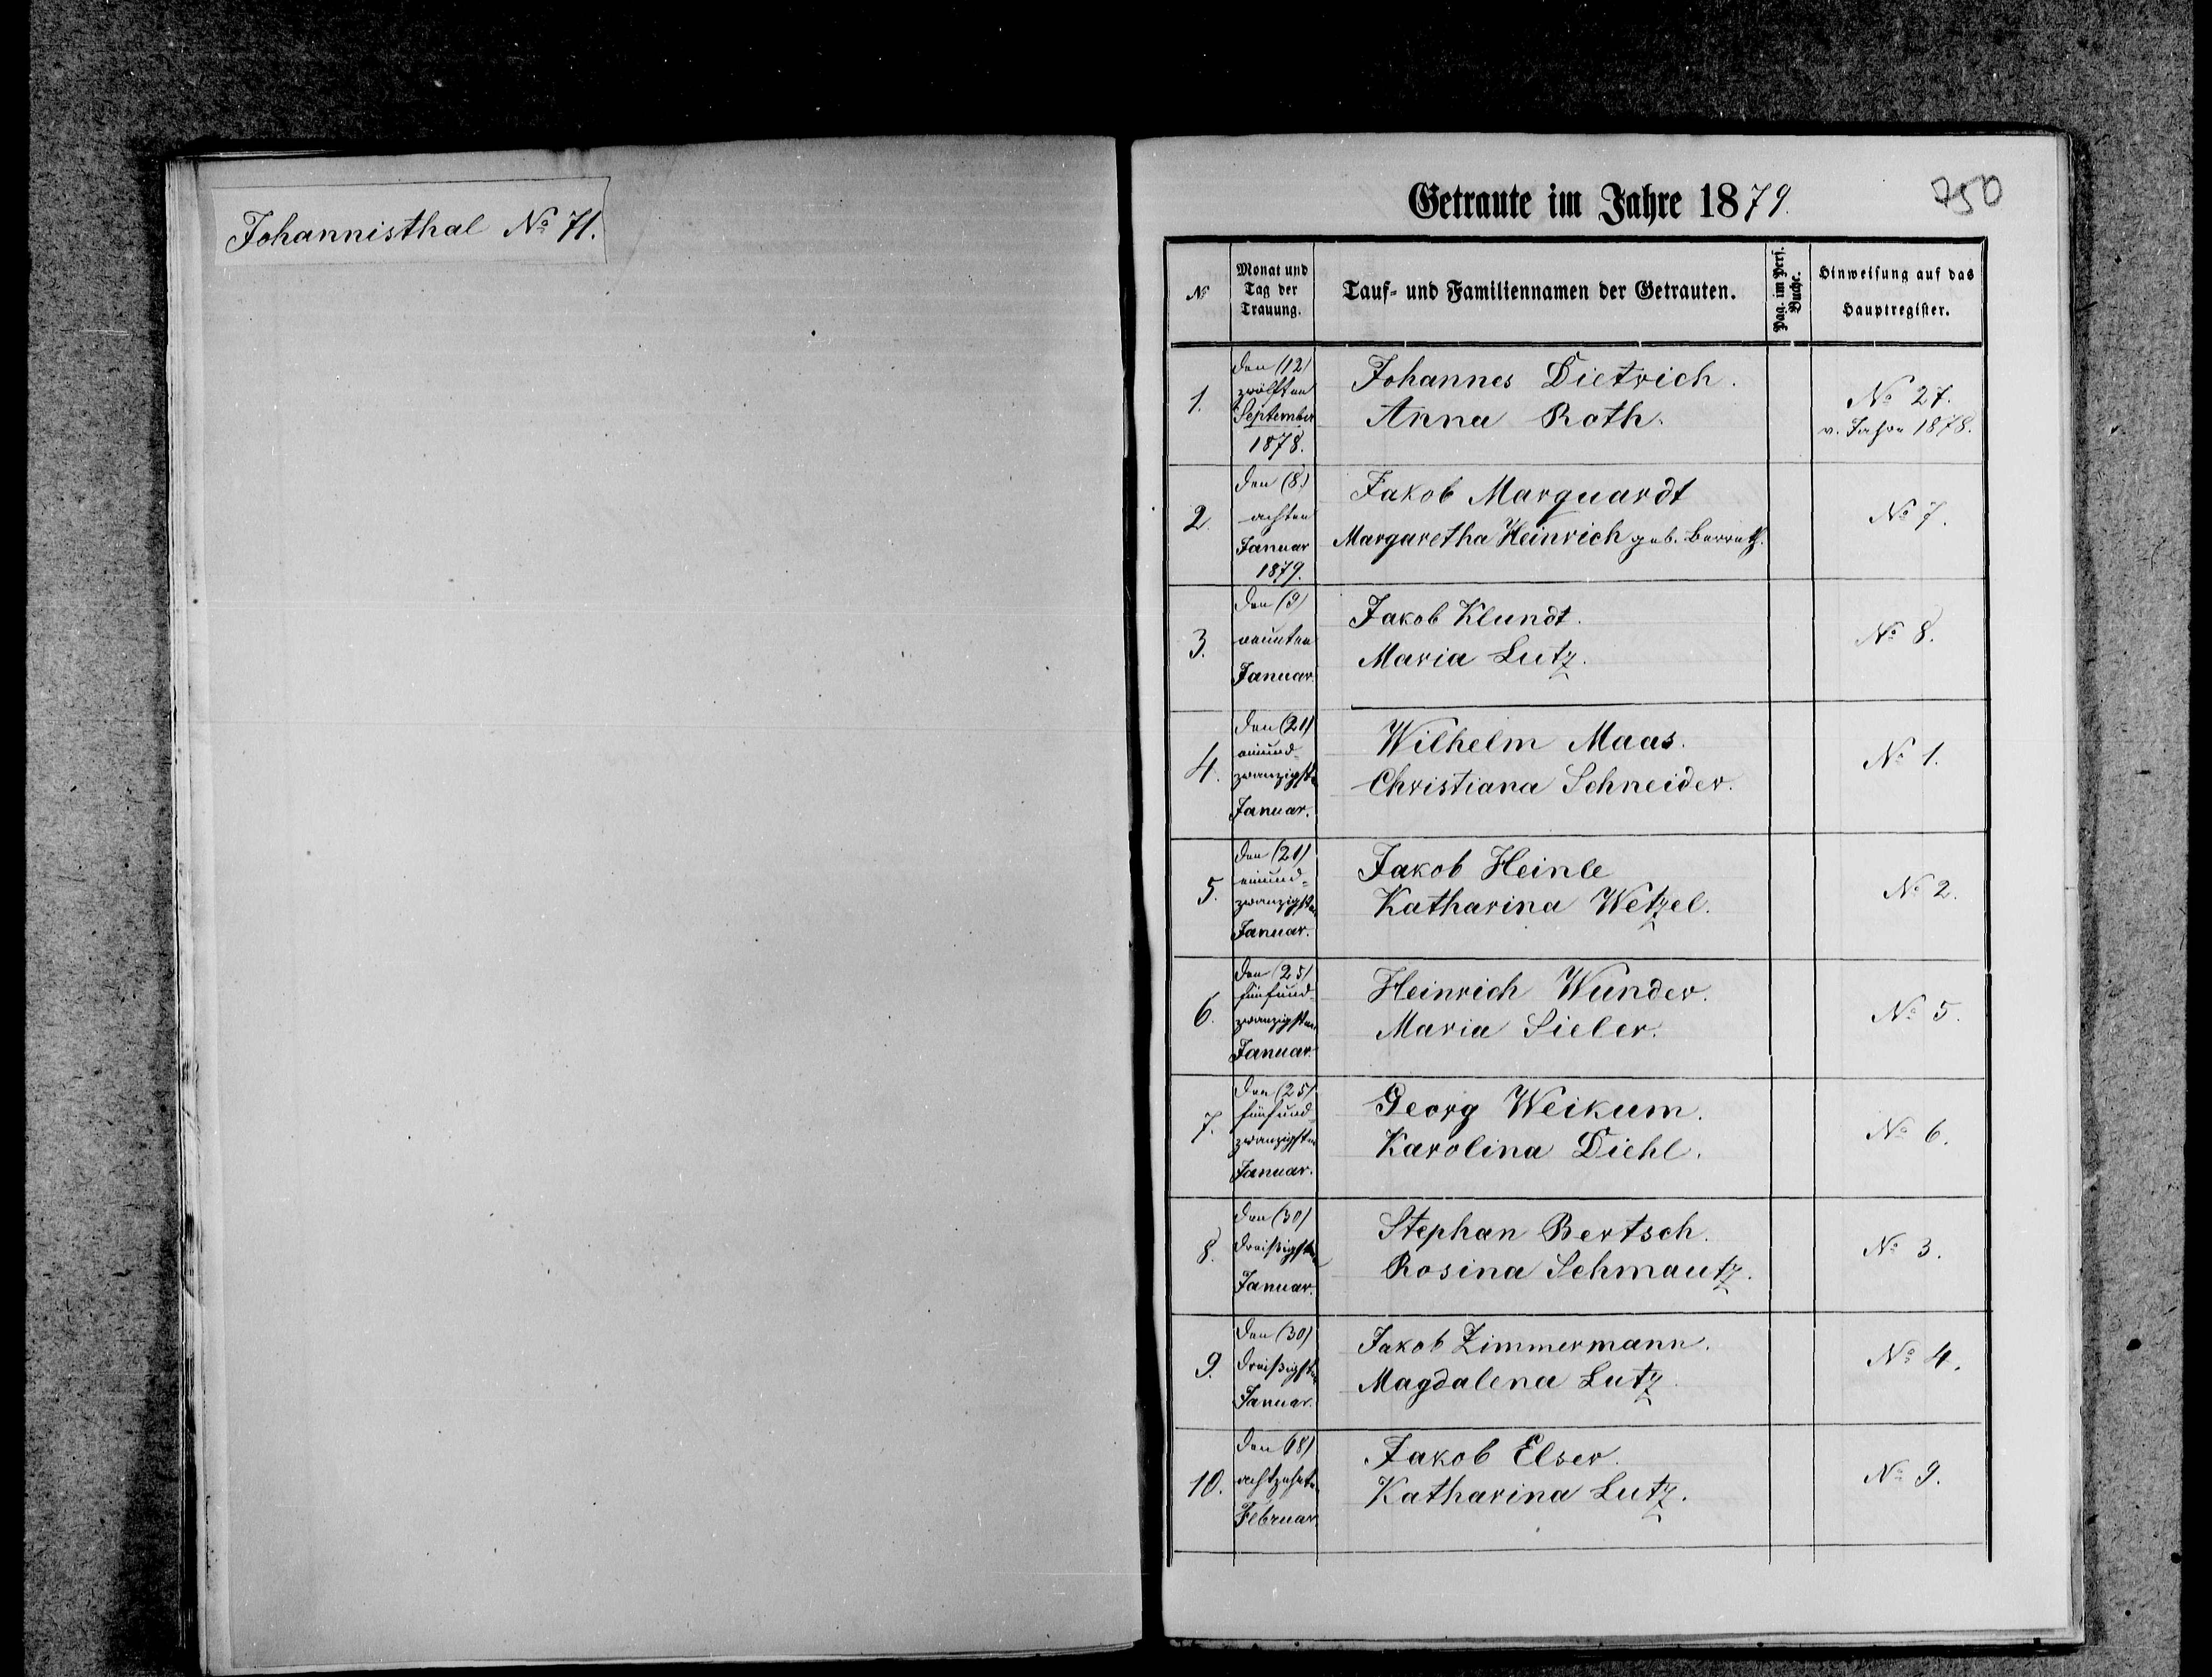 Johannisthal No 71.
Getraute im Jahre 1879.
750
No
Monat und
Tag der
Trauung.
Tauf- und Familiennamen der Getrauten.
Pag. im Pers.
Buche.
Hinweisung auf das
Hauptregister.
1.
den (12)
zwölften
September
1878.
Johannes Dietrich.
Anna Roth.
No 27.
v. Jahre 1878.
2.
den (8.)
achten
Januar
1879.
Jakob Marquardt
Margaretha Heinrich geb. Barreth.
No 7.
3.
den (9)
neunten
Januar.
Jakob Klundt.
Maria Lutz.
No 8.
4.
den (21)
einund-
zwanzigsten
Januar.
Wilhelm Maas.
Christiana Schneider.
No 1.
5.
den (21)
einund-
zwanzigsten
Januar.
Jakob Heinle
Katharina Wetzel.
No 2.
6.
den (25)
fünfund-
zwanzigsten
Januar.
Heinrich Wunder.
Maria Sieler.
No 5.
7.
den (25)
fünfund-
zwanzigsten
Januar.
Georg Weikum.
Karolina Diehl.
No 6.
8.
den (30)
dreißigsten
Januar.
Stephan Bertsch.
Rosina Schmautz.
No 3.
9.
den (30)
dreißigsten
Januar.
Jakob Zimmermann.
Magdalena Lutz
No 4.
10.
den (18)
achtzehnten
Februar.
Jakob Elser.
Katharina Lutz.
No 9.